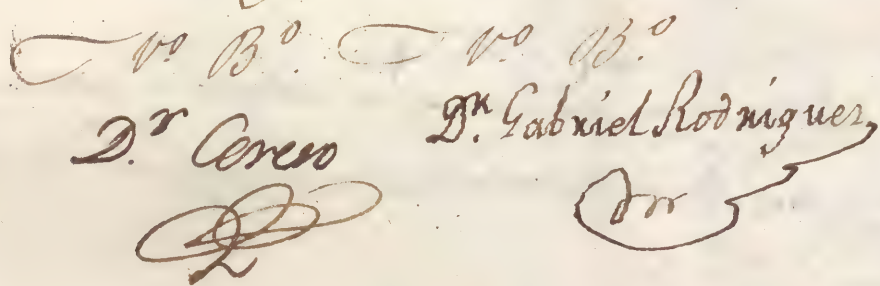 Vº Bº Vº Bº
D.r Cerero D.r Gabriel Rodriguez